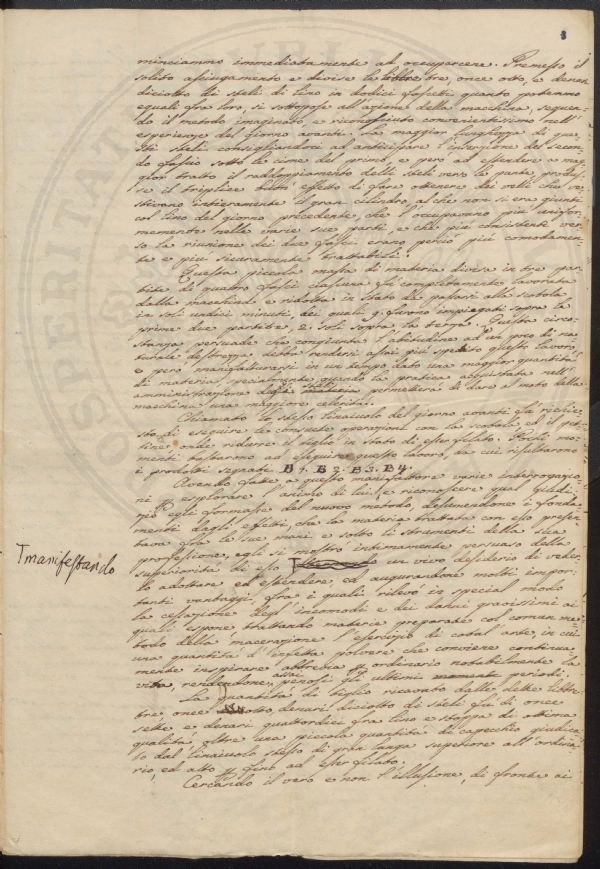 8
minciammo immediatamente ad occuparcene. Premesso il
solito asciugamento e divise le libbre tre, once otto, e denari
diciotto di steli di lino in dodici fascetti quanto potevamo
eguali fra loro, si sottopose all'azione della macchina, seguen-
do il metodo imaginato, e riconosciuto convenientissimo nell'
esperienze del giorno avanti. La maggior lunghezza di que-
sti steli consigliandoci ad anticipare l'inserzione del secon-
do fascio sotto le cime del primo, e però ad estendere a mag-
gior tratto il raddoppiamento delli steli verso la parte, produs-
se il triplice buon effetto di fare ottenere dei veli che ve-
stivano intieramente il gran cilindro, al che non si era giunti
col lino del giorno precedente, che l'occupavano più unifor-
memente nelle varie sue parti, e che più consistenti ver-
so la riunione dei due fasci erano perciò più comodamen-
te e più sicuramente trattabili.
Questa piccola massa di materia divisa in tre par-
tite di quattro fasci ciascuna fu completamente lavorata
dalla macchina e ridotta in stato da passarsi alla scotola
in soli undici minuti, dei quali 9. furono impiegati sopra le
prime due partite, e 2. soli sopra la terza. Questa circo-
stanza persuade che congiunta l'abitudine ad un poco di na-
turale destrezza debba rendersi assai più spedito questo lavoro
e però manifatturarsi in un tempo dato una maggior quantità
di materia, specialmente quando la pratica acquistata nell'
amministrazione degli steli permetterà di dare al moto della
macchina una maggiore celerità.
Chiamato lo stesso linaiuolo del giorno avanti fu richie-
sto di eseguire le consuete operazioni con la scotola ed il pet-
tine onde ridurre il tiglio in stato di esser filato. Pochi mo-
menti bastarono ad eseguire questo lavoro, da cui risultarono
i prodotti segnati B 1. B 2. B 3. B 4.
Avendo fatte a questo manifattore varie interrogazio-
ni per esplorare l'animo di lui e riconoscere qual giudi-
zio egli formasse del nuovo metodo, desumendone i fonda-
menti dagli effetti, che la materia trattata con esso presen-
tava fra le sue mani e sotto li strumenti della sua
professione, egli si mostrò intimamente persuaso della
superiorità di esso manifestando un vivo desiderio di veder-
lo adottare ed estendere, ed augurandone molti impor-
tanti vantaggi, fra i quali rilevò in special modo
la cessazione degl'incomodi e dei danni gravissimi ai
quali espone trattando materie preparate col comun me-
todo della macerazione l'esercizio di cotal arte, in cui
una quantità d'infetta polvere che conviene continua-
mente inspirare abbrevia per ordinario notabilmente la
vita, rendendone assai penosi gli ultimi periodi.
La quantità di tiglio ricavato dalle dette libbre
tre, once otto, denari diciotto di steli fu di once
sette e denari quattordici fra lino e stoppa di ottima
qualità, oltre una piccola quantità di capecchio giudica-
to dal linaiuolo stesso di gran lunga superiore all'ordina-
rio, ed atto fino ad esser filato.
Cercando il vero e non l'illusione, di fronte ai